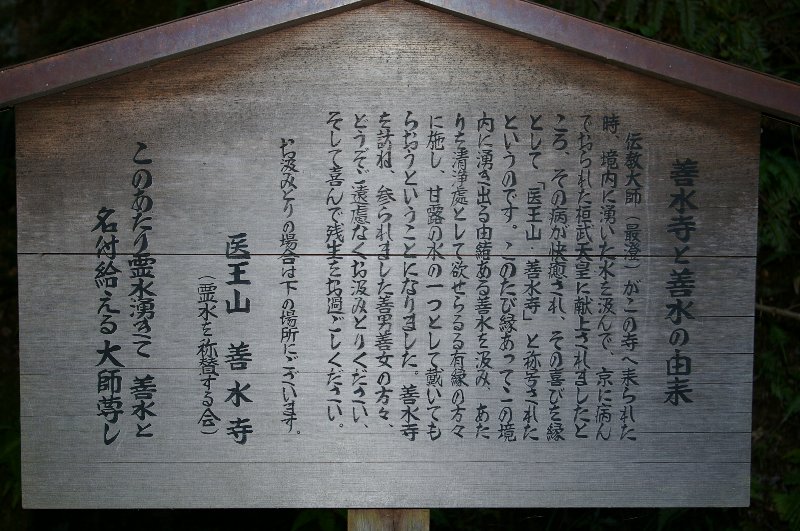 善水寺と善水の由来
伝教大師（最澄）がこの寺へ来られた
時、境内に湧いた水を汲んで、京に病ん
でおられた桓武天皇に献上されましたと
ころ、その病が快癒され、その喜びを縁
として「医王山・善水寺」と称号された
というのです。このたび縁あってこの境
内に湧き出る由緒ある善水を汲み、あた
りを清浄處として欲せらるる有縁の方々
に施し、甘露の水の一つとして戴いても
らおうということになりました。善水寺
を訪ね、参られました善男善女の方々、
どうぞご遠慮なくお汲みとりください、
そして喜んで残生をお過ごしください。
お汲みとりの場合は下の場所にございます。
医王山　善水寺
（霊水を称賛する会）
このあたり霊水湧きて　善水と
名付給える大師尊し